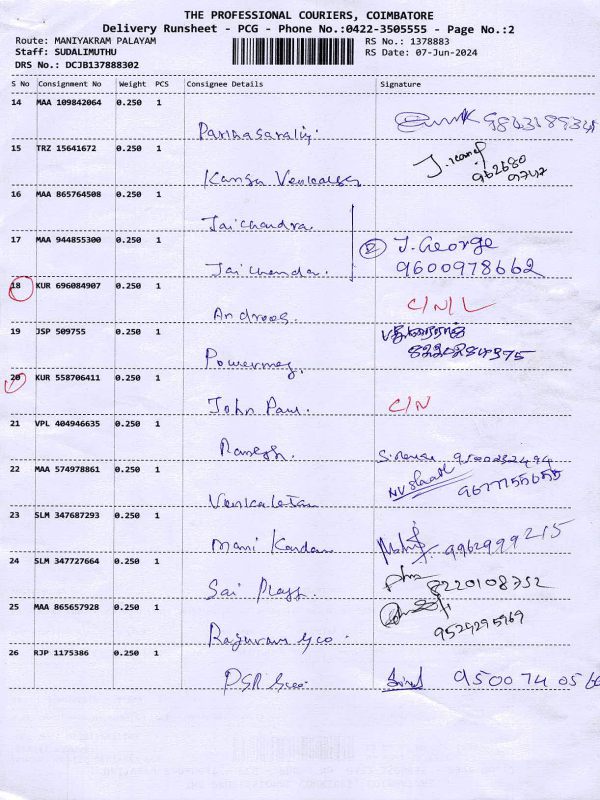 THE PROFESSIONAL COURIERS, COIMBATORE
Delivery Runsheet - PCG - Phone No.:0422-3505555 - Page No.:2
Route: MANIYAKRAM PALAYAM RS No.: 1378883
Staff: SUDALIMUTHU RS Date: 07-Jun-2024
DRS No.: DCJB137888302
S No Consignment No Weight PCS Consignee Details Signature
14 MAA 109842064 0.250 1
15 TRZ 15641672 0.250 1
16 MAA 865764508 0.250 1
Jaichandra.
17 MAA 944855300 0.250 1 J. George
Jaichandra. 9600978662
18 KUR 696084907 0.250 1 C/N/L
Androos.
19 JSP 509755 0.250 1
20 KUR 558706411 0.250 1
John Paul. C/N
21 VPL 404946635 0.250 1
Ramesh.
22 MAA 574978861 0.250 1
23 SLM 347687293 0.250 1
Mani Kandan 9962999215
24 SLM 347727664 0.250 1
Sai 8220108752
25 MAA 865657928 0.250 1
9524295969
26 RJP 1175386 0.250 1
PSR 9500740566